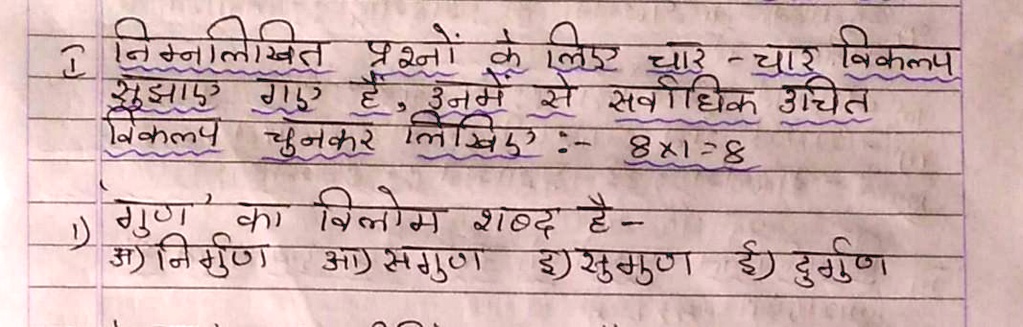 I निम्नलिखित प्रश्नों के लिए चार - चार विकल्प
सुझाए गए हैं, उनमें से सर्वाधिक उचित
विकल्प चुनकर लिखिए :- 8x1=8
1) 'गुण' का विलोम शब्द है -
अ) निर्गुण आ) सगुण इ) सुगुण ई) दुर्गुण